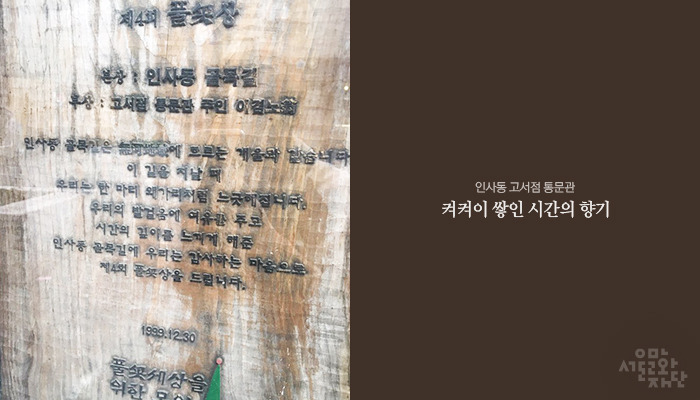 제4회 풀꽃상
본상 : 인사동 골목길
부상 : 고서점 통문관 주인 이겸노翁
인사동 골목길은 에 흐르는 개울과 같습니다
이 길을 지날 때
우리는 한 마리 왜가리처럼 느긋해집니다.
우리의 발걸음에 여유를 주고
시간의 깊이를 느끼게 해준
인사동 골목길에 우리는 감사하는 마음으로
제4회 풀꽃상을 드립니다.
1999.12.30
풀꽃세상을
위한 모임
인사동 고서점 통문관
켜켜이 쌓인 시간의 향기
서울문화재단